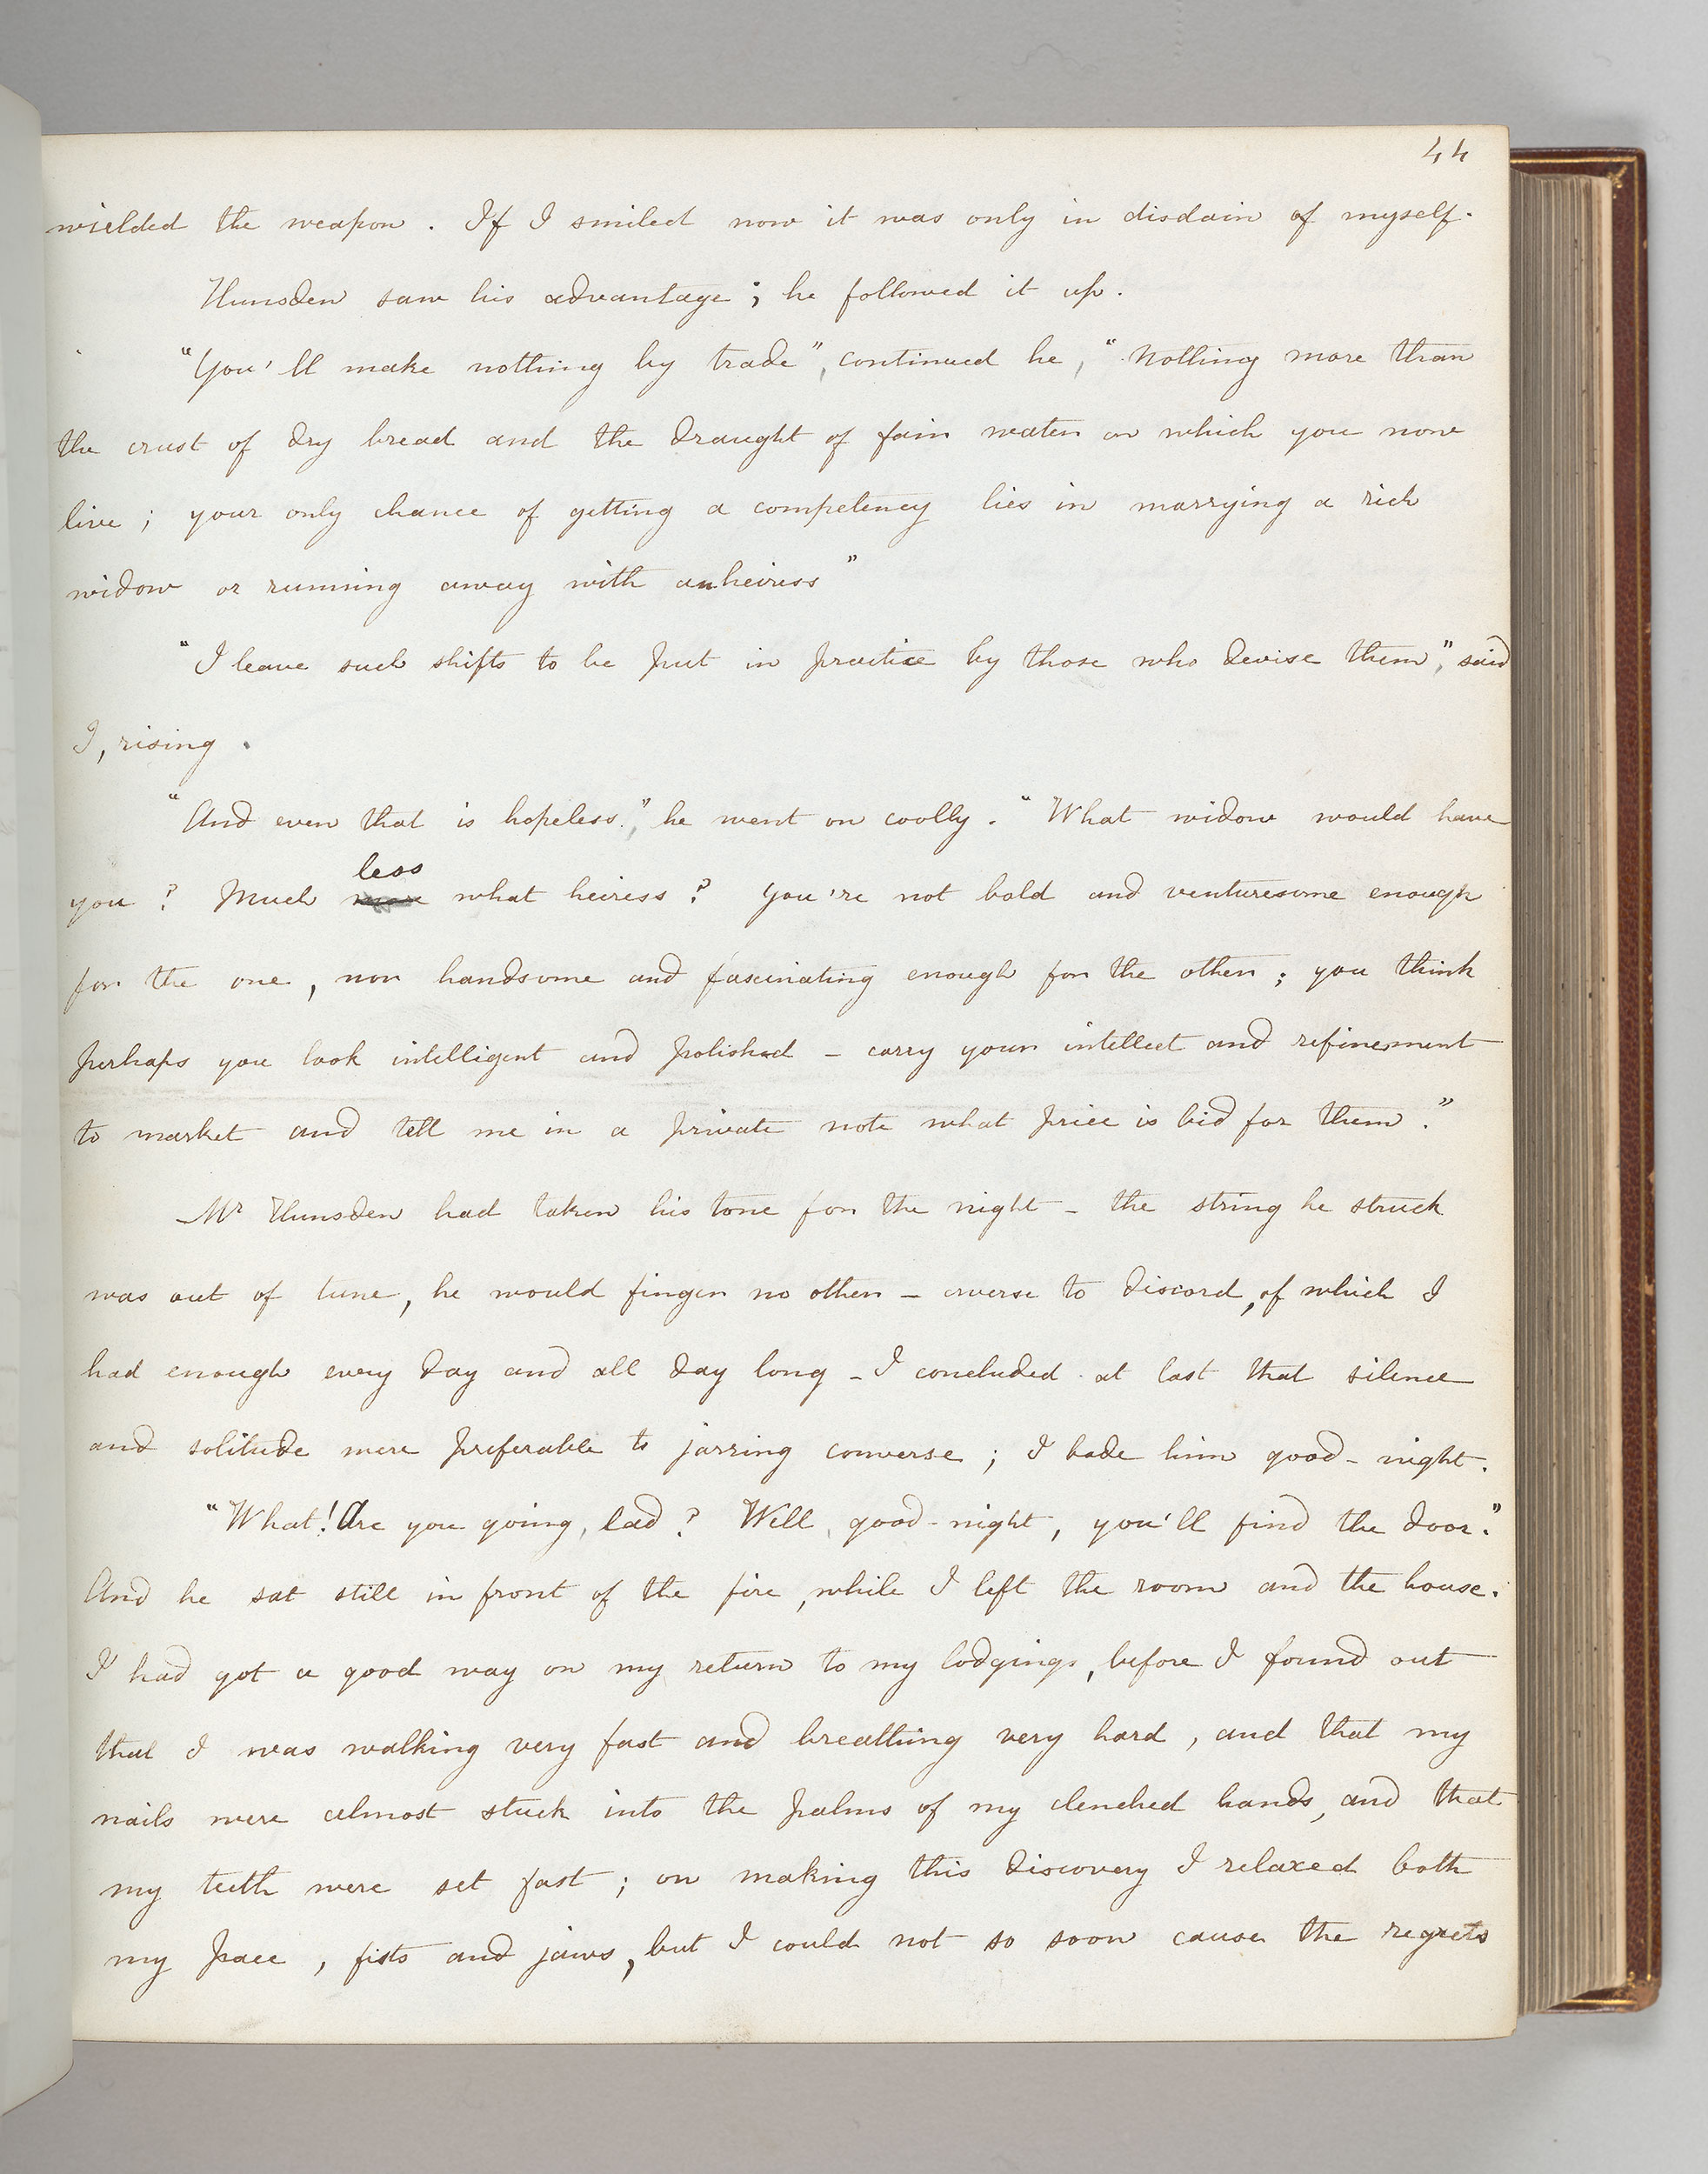 44
wielded the weapon. If I smiled now it was only in disdain of myself.
Hunsden saw his advantage; he followed it up.
"You'll make nothing by trade", continued he, "nothing more than
the crust of dry bread and the draught of fair water on which you now
live; your only chance of getting a competency lies in marrying a rich
widow or running away with an heiress"
"I leave such shifts to be put in practice by those who devise them," said
I, rising.
"And even that is hopeless," he went on coolly. "What widow would have
less
you? Much more what heiress? You're not bold and venturesome enough
for the one, nor handsome and fascinating enough for the other; you think
perhaps you look intelligent and polished - carry your intellect and refinement
to market and tell me in a private note what price is bid for them."
Mr Hunsden had taken his tone for the night - the string he struck
was out of tune, he would finger no other - averse to discord, of which I
had enough every day and all day long - I concluded at last that silence
and solitude were preferable to jarring converse; I bade him good-night.
"What! Are you going, lad? Well, good-night, you'll find the door."
And he sat still in front of the fire, while I left the room and the house.
I had got a good way on my return to my lodgings, before I found out
that I was walking very fast and breathing very hard, and that my
nails were almost stuck into the palms of my clenched hands, and that
my teeth were set fast; on making this discovery I relaxed both
my pace, fists and jaws, but I could not so soon cause the regrets